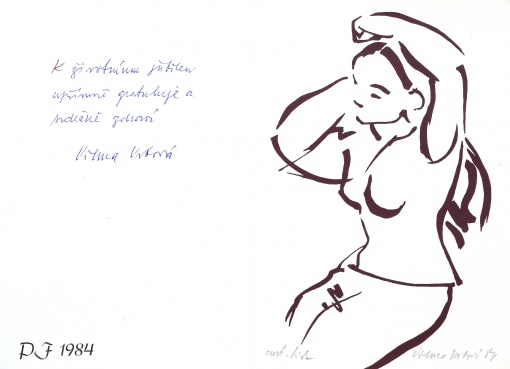 K životnímu jubileu
upřímně gratuluje a
srdečně zdraví
Vilma Vrbová
P.F. 1984
aut. tisk
Vilma Vrbová 84